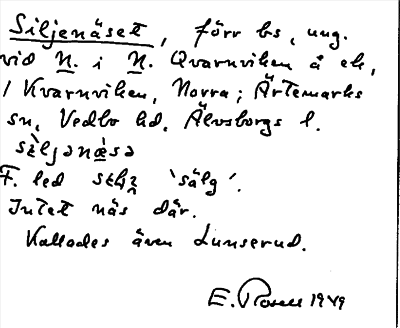 Siljenäset, förr bs, ung.
vid N. i N. Qvarnviken å ek,
/ Kvarnviken, Norra; Ärtemarks
sn, Vedbo hd, Älvsborgs l.
sèljənæ̀sə
F. led 'sälg'.
Intet näs där.
Kallades även Lunserud.
E. Rosell 1949